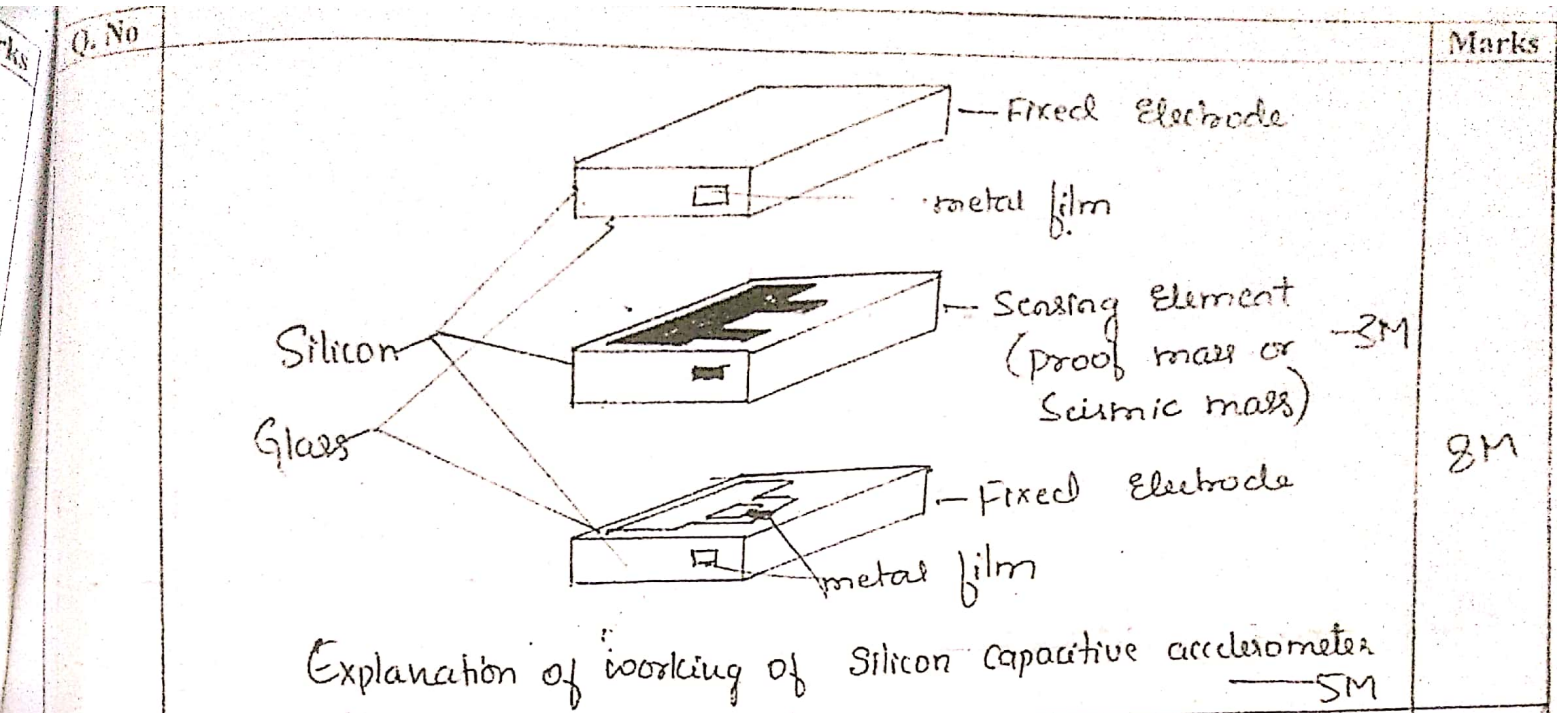 Q. No
Marks
Fixed Electrode
metal film
Silicon
Sensing Element
(proof mass or
Seismic mass)
-3M
Glass
8M
Fixed Electrode
metal film
Explanation of working of Silicon capacitive accelerometer
5M